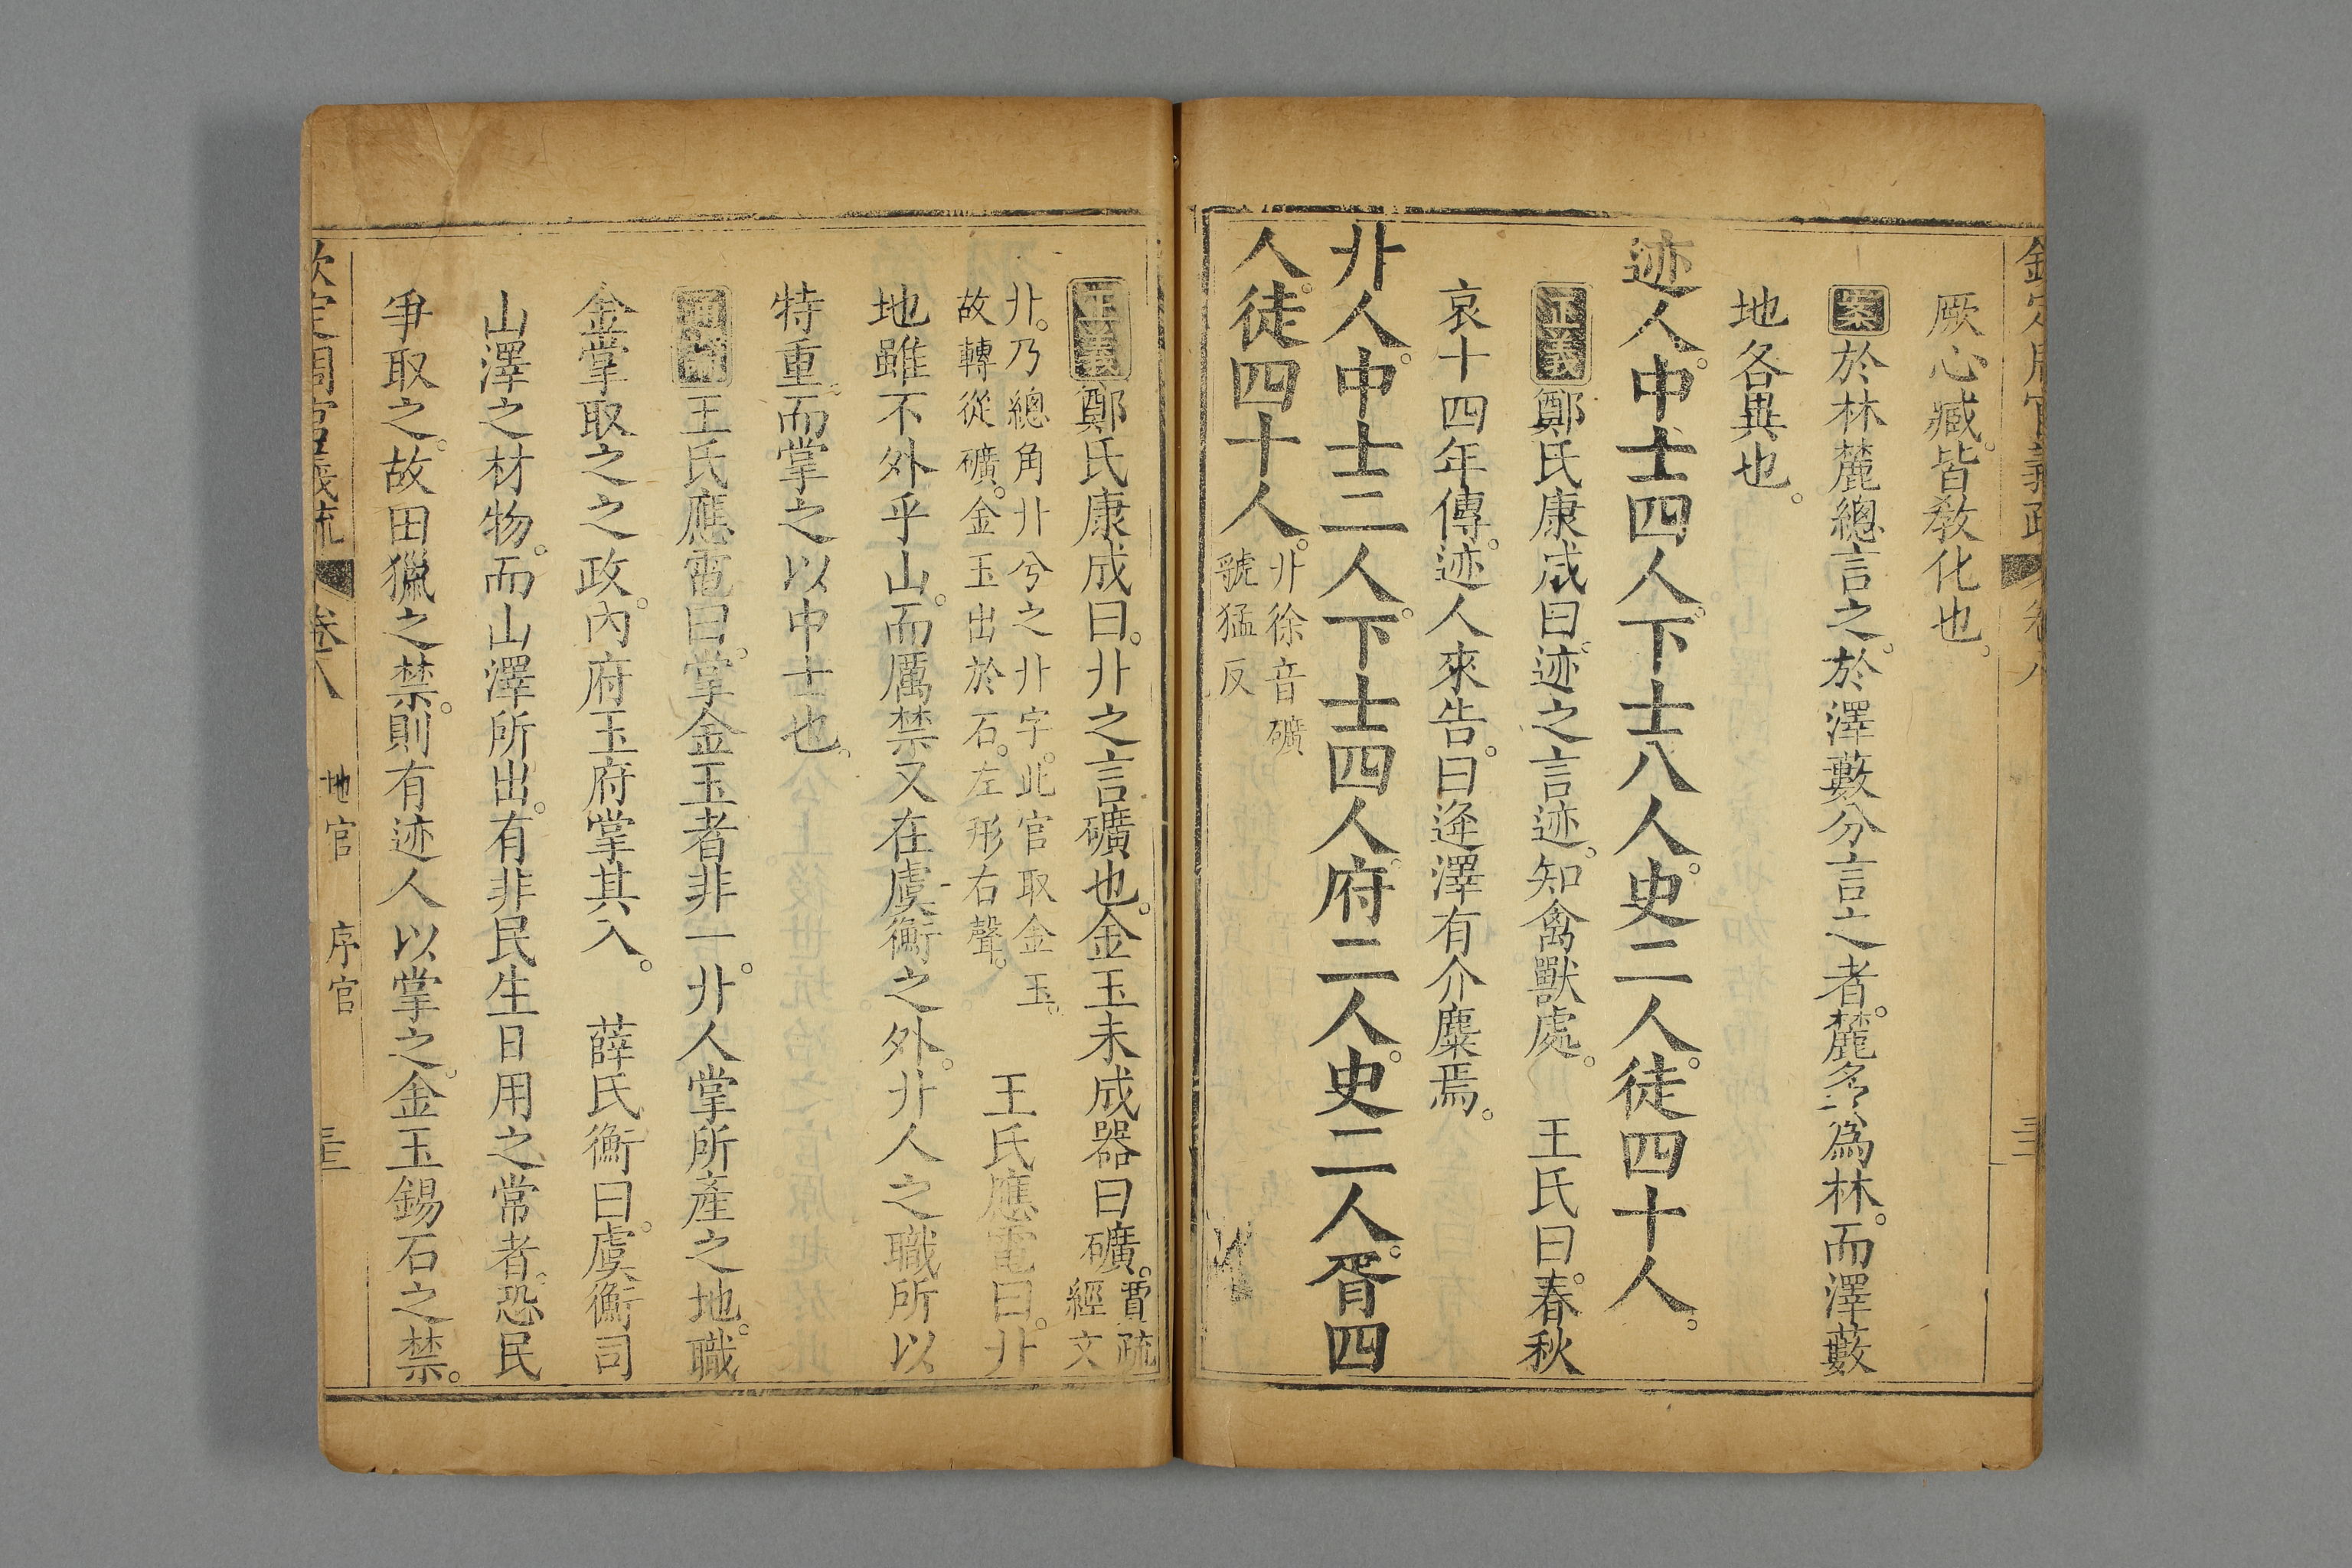 欽定周官義疏 卷八
厥心臧。皆敎化也。
案於林麓總言之。於澤藪分言之者。麓多爲林。而澤藪
地各異也。
迹人。中士四人。下士八人。史二人。徒四十人。
正義鄭氏康成曰。迹之言迹。知禽獸處。 王氏曰。春秋
哀十四年傳。迹人來告。曰逄澤有介麋焉。
丱人。中士二人。下士四人。府二人。史二人。胥四
人。徒四十人。丱徐音礦
虢猛反
正義鄭氏康成曰。丱之言礦也。金玉未成器曰礦。賈疏
經文
丱。乃總角丱兮之丱字。此官取金玉。
故轉從礦。金玉出於石。左形右聲。 王氏應電曰。丱
地雖不外乎山。而厲禁又在虞衡之外。丱人之職所以
特重。而掌之以中士也。
通論王氏應電曰。掌金玉者非一。丱人掌所產之地。職
金掌取之之政。內府玉府掌其入。 薛氏衡曰。虞衡司
山澤之材物。而山澤所出。有非民生日用之常者。恐民
爭取之。故田獵之禁。則有迹人以掌之。金玉錫石之禁。
欽定周官義疏 卷八 地官 序官